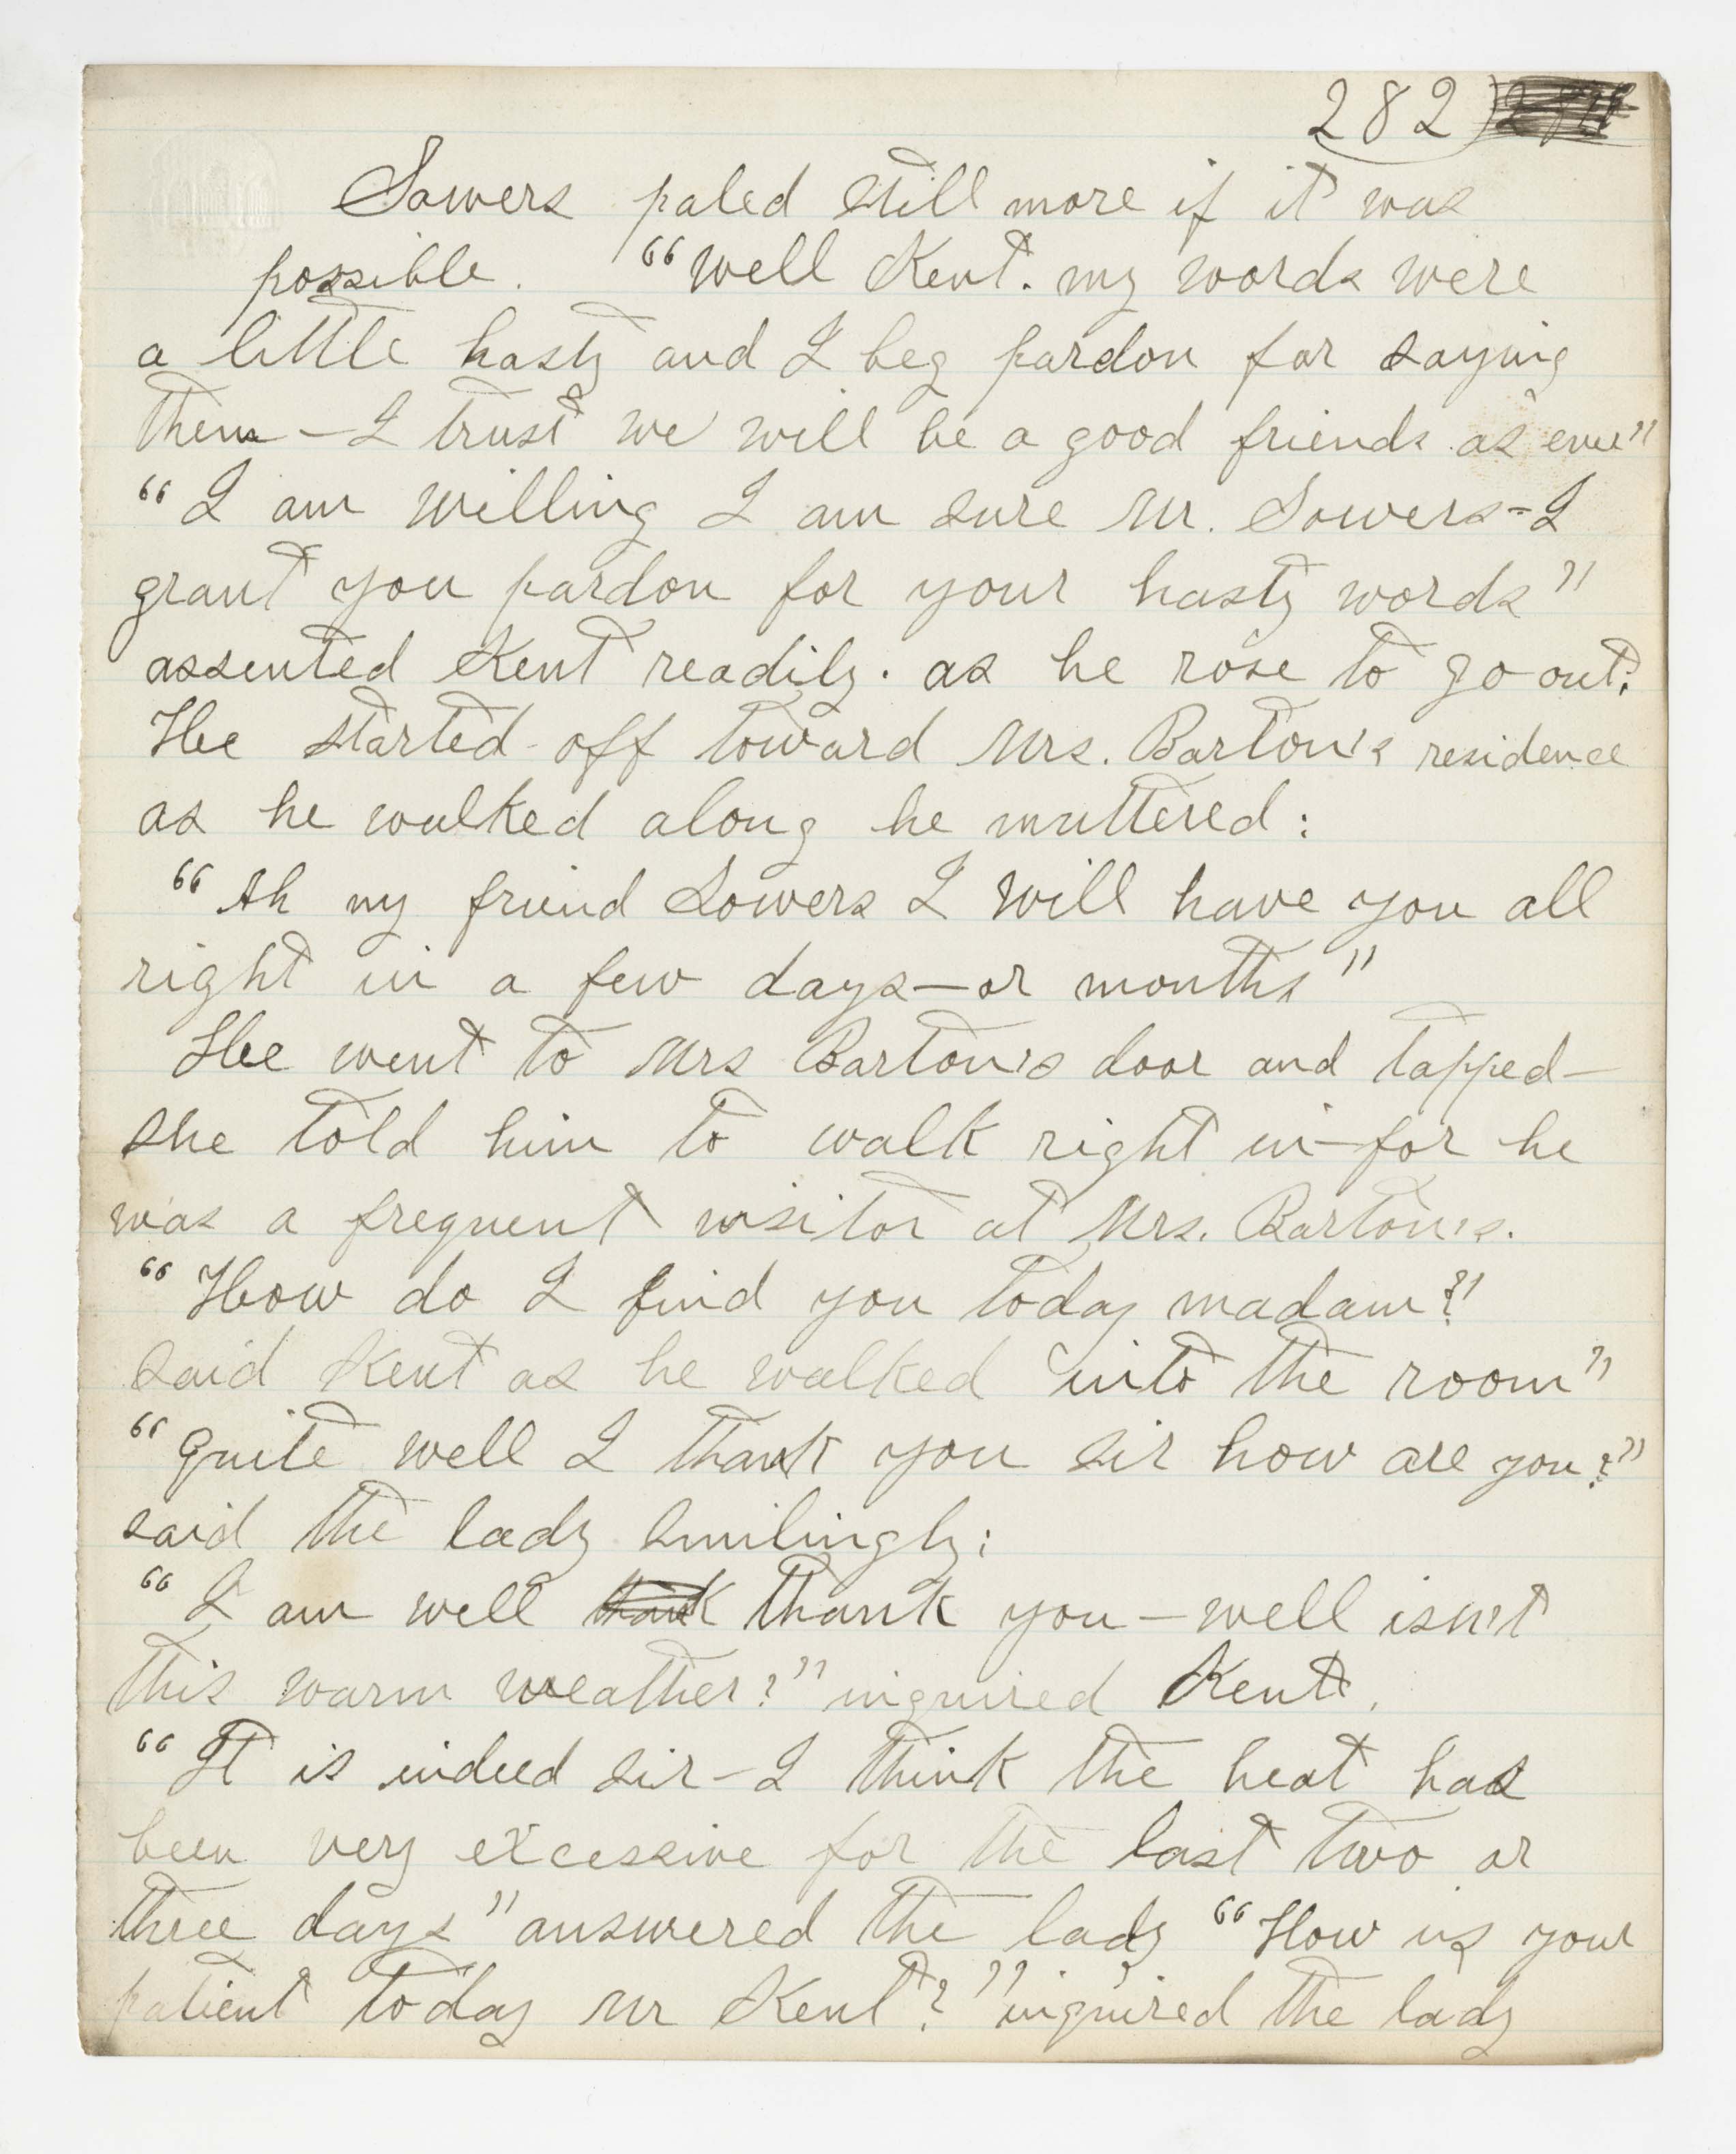 282)
Sowers paled still more if it was
possible. "well Kent. my words were
a little hasty and I beg pardon for saying
them - I trust we will be a good friends as ever"
"I am willing I am sure Mr. Sowers - I
grant you pardon for your hasty words"
assented Kent readily. as he rose to go out.
He started off toward Mrs. Barton's residence
as he walked along he muttered:
"Ah my friend Sowers I will have you all
right in a few days - or months"
He went to Mrs Barton's door and tapped -
she told him to walk right in - for he
was a frequent visitor at Mrs. Barton's.
"How do I find you today madam?"
said Kent as he walked into the room"
"quite well I thank you sir how are you?"
said the lady smilingly;
"I am well thank thank you - well isn't
this warm weather?" inquired Kent.
"It is indeed sir - I think the heat has
been very excessive for the last two or
three days" answered the lady "How is your
patient today Mr Kent?" inquired the lady